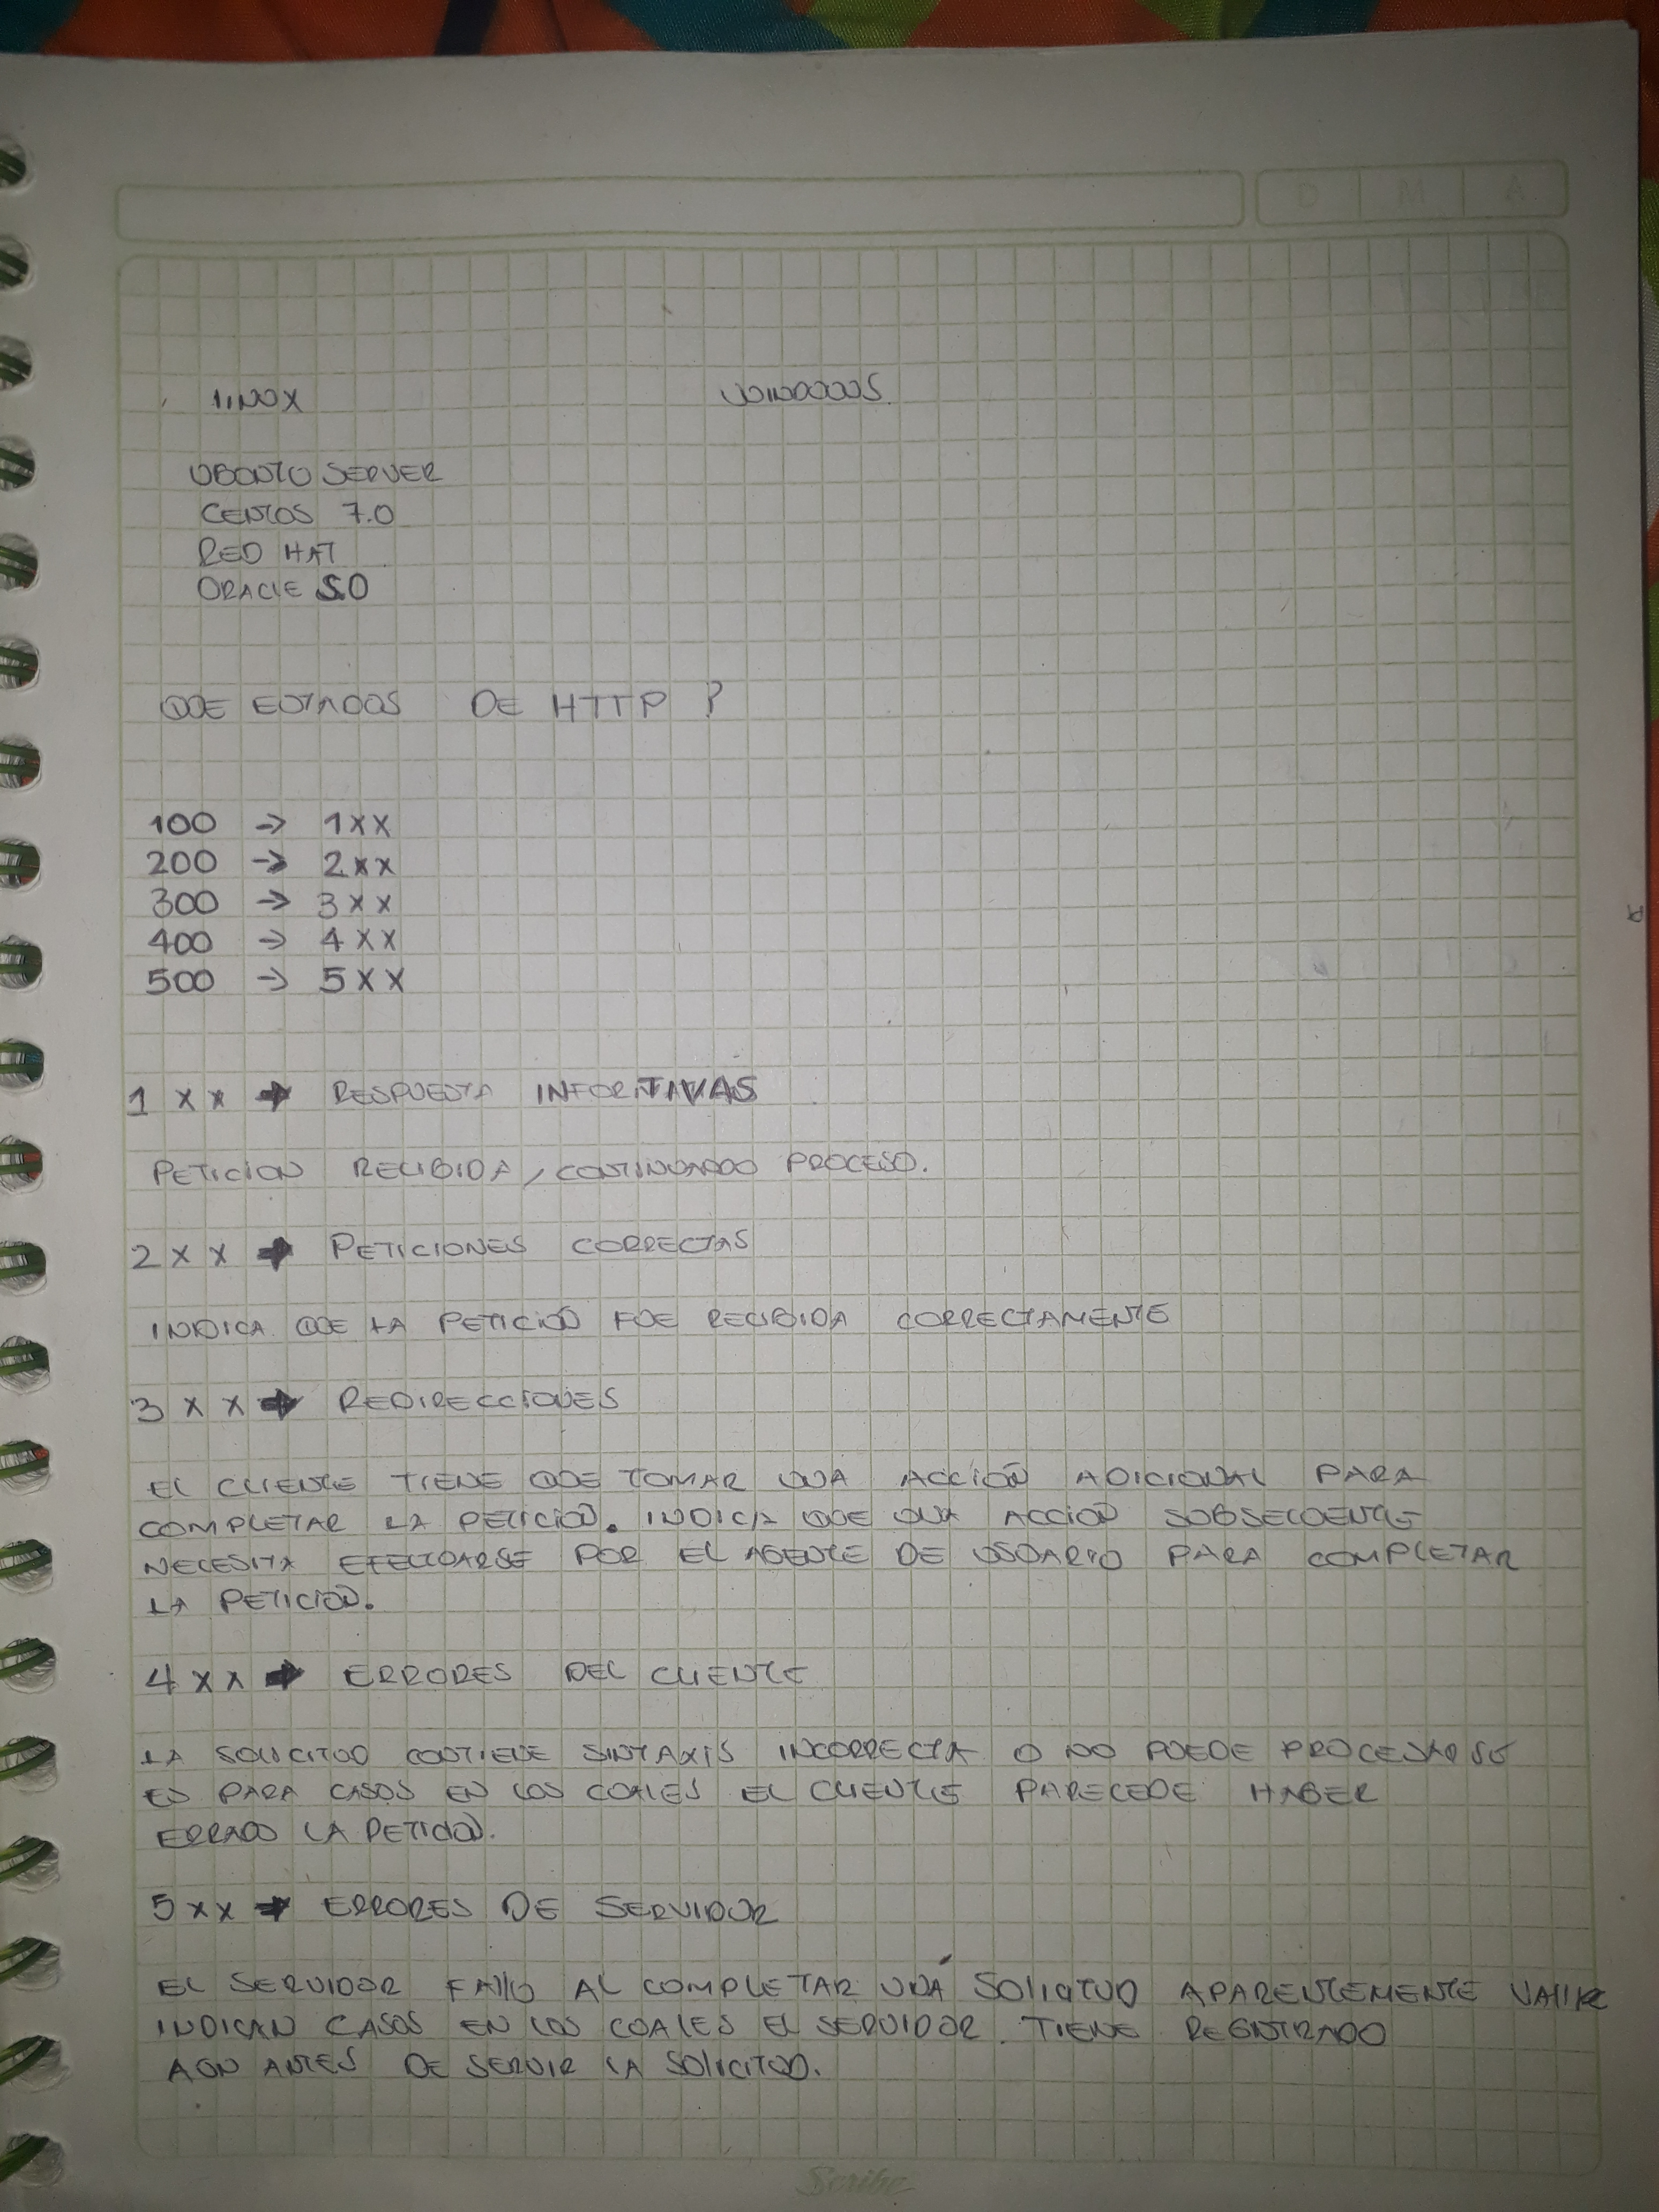 D M A
LINUX WINDOWS
UBUNTU SERVER
CENTOS 7.0
RED HAT
ORACLE S.O
QUE ESTADOS DE HTTP ?
100 → 1XX
200 → 2XX
300 → 3XX
400 → 4XX
500 → 5XX
1 X X → RESPUESTA INFORTIVAS
PETICION RECIBIDA, CONTINUADO PROCESO.
2 X X → PETICIONES CORRECTAS
INDICA QUE LA PETICIÓN FUE RECIBIDA CORRECTAMENTE
3 X X → REDIRECCIONES
EL CLIENTE TIENE QUE TOMAR UNA ACCIÓN ADICIONAL PARA
COMPLETAR LA PETICIÓN. INDICA QUE UNA ACCIÓN SUBSECUENTE
NECESITA EFECTUARSE POR EL AGENTE DE USUARIO PARA COMPLETAR
LA PETICIÓN.
4 X X → ERRORES DEL CLIENTE
LA SOLICITUD CONTIENE SINTAXIS INCORRECTA O NO PUEDE PROCESARSE
ES PARA CASOS EN LOS CUALES EL CLIENTE PARECEDE HABER
ERRADO LA PETICIÓN.
5 X X → ERRORES DE SERVIDOR
EL SERVIDOR FALLO AL COMPLETAR UNA SOLICITUD APARENTEMENTE
INDICAN CASOS EN LOS CUALES EL SERVIDOR TIENE REGISTRADO
AUN ANTES DE SERVIR LA SOLICITUD.
Scribe